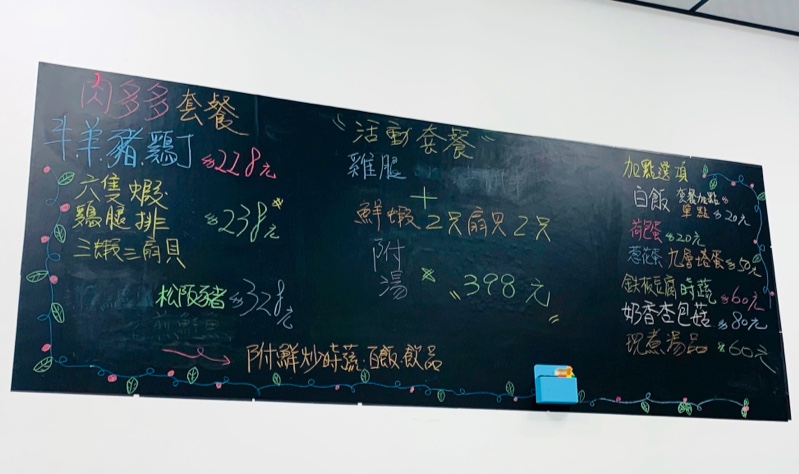 肉多多套餐
牛羊豬鷄丁 228元
六隻蝦
鷄腿排 238元
三蝦三扇貝
松阪豬 328元
附鮮炒時蔬.白飯.飲品
"活動套餐"
雞腿
+
鮮蝦2只扇貝2只
附
湯
"398元"
加點選項
白飯 套餐加點
單點 20元
荷包蛋 20元
蔥花蛋 九層塔蛋 50元
鉄板豆腐 時蔬 60元
奶香杏包菇 80元
現煮湯品 60元